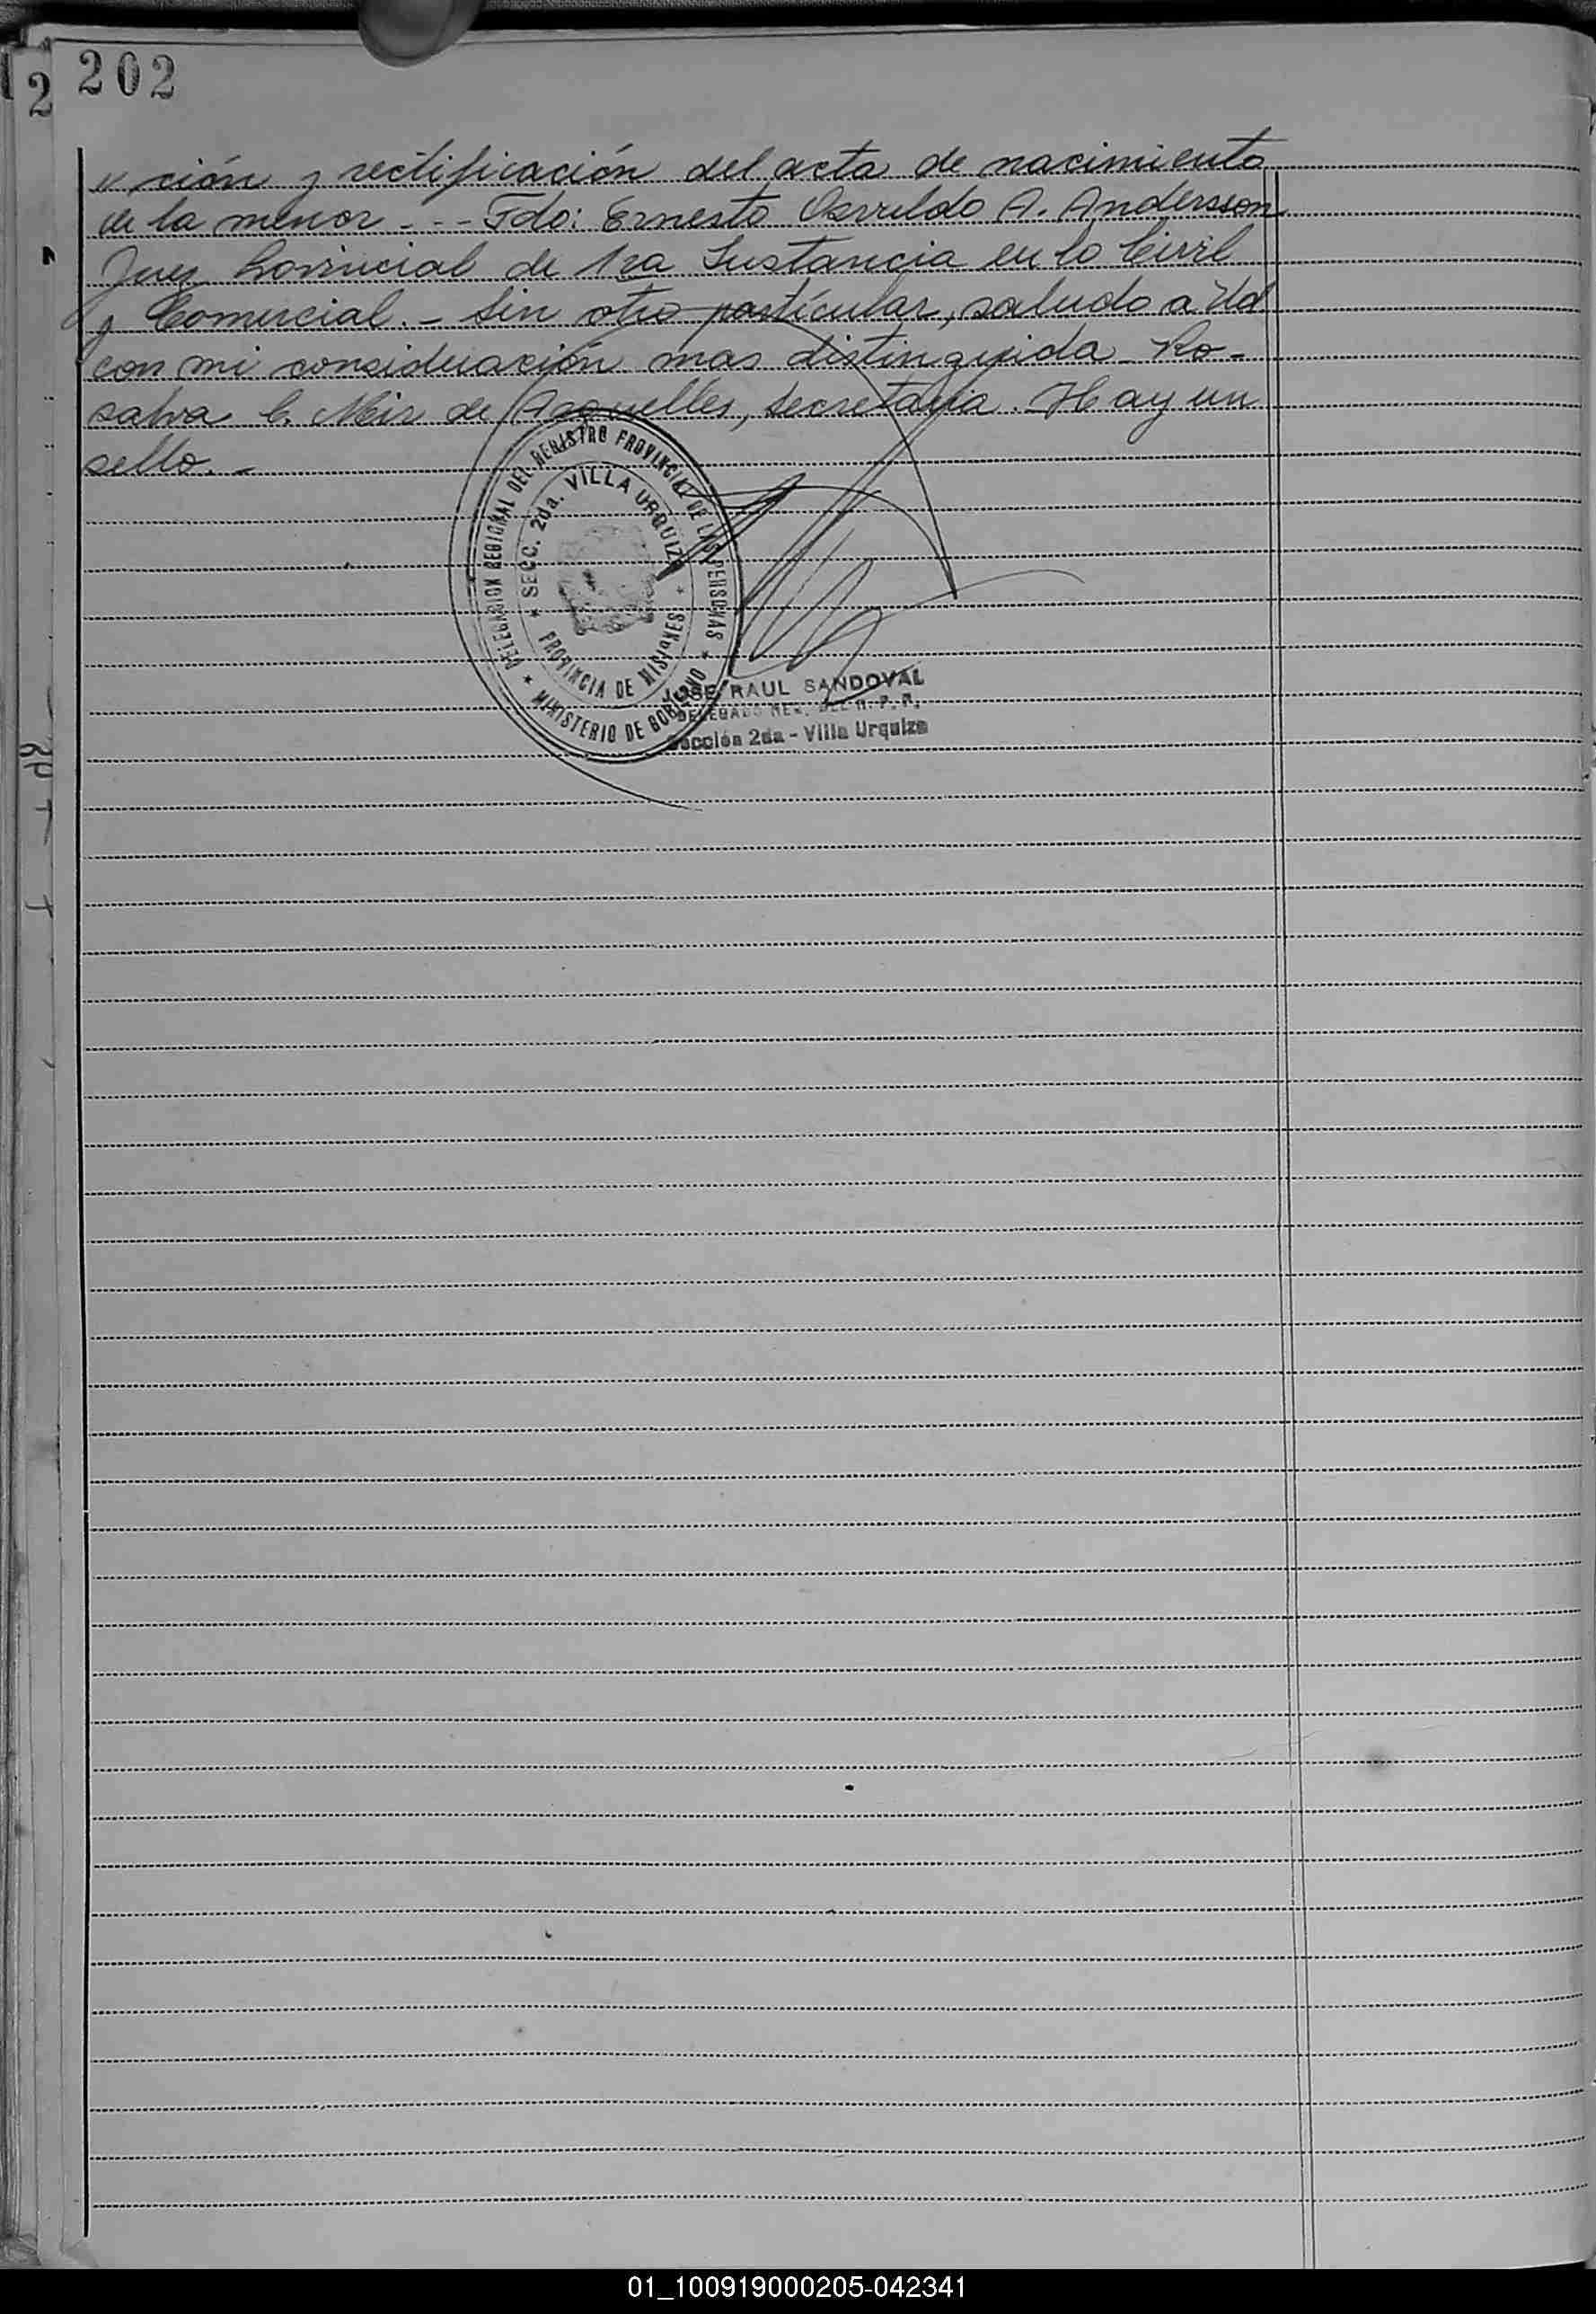 202
2
" ción y rectificación del acta de nacimiento
de la menor. - - - Fdo: Ernesto Osvaldo A. Andersson
Juez Provincial de 1ra Instancia en lo Civil
y Comercial. - Sin otro particular, saludo a Ud
con mi consideración mas distinguida - Ro-
salva C. Mir de Arguelles, Secretaria. Hay un
sello. -
DELEGACION REGIONAL DEL REGISTRO PROVINCIAL DE LAS PERSONAS
* MINISTERIO DE GOBIERNO *
* SECC. 2da. VILLA URQUIZA *
PROVINCIA DE MISIONES
JOSE RAUL SANDOVAL
DELEGADO REG. DEL R. P. P.
Sección 2da - Villa Urquiza
01_100919000205-042341